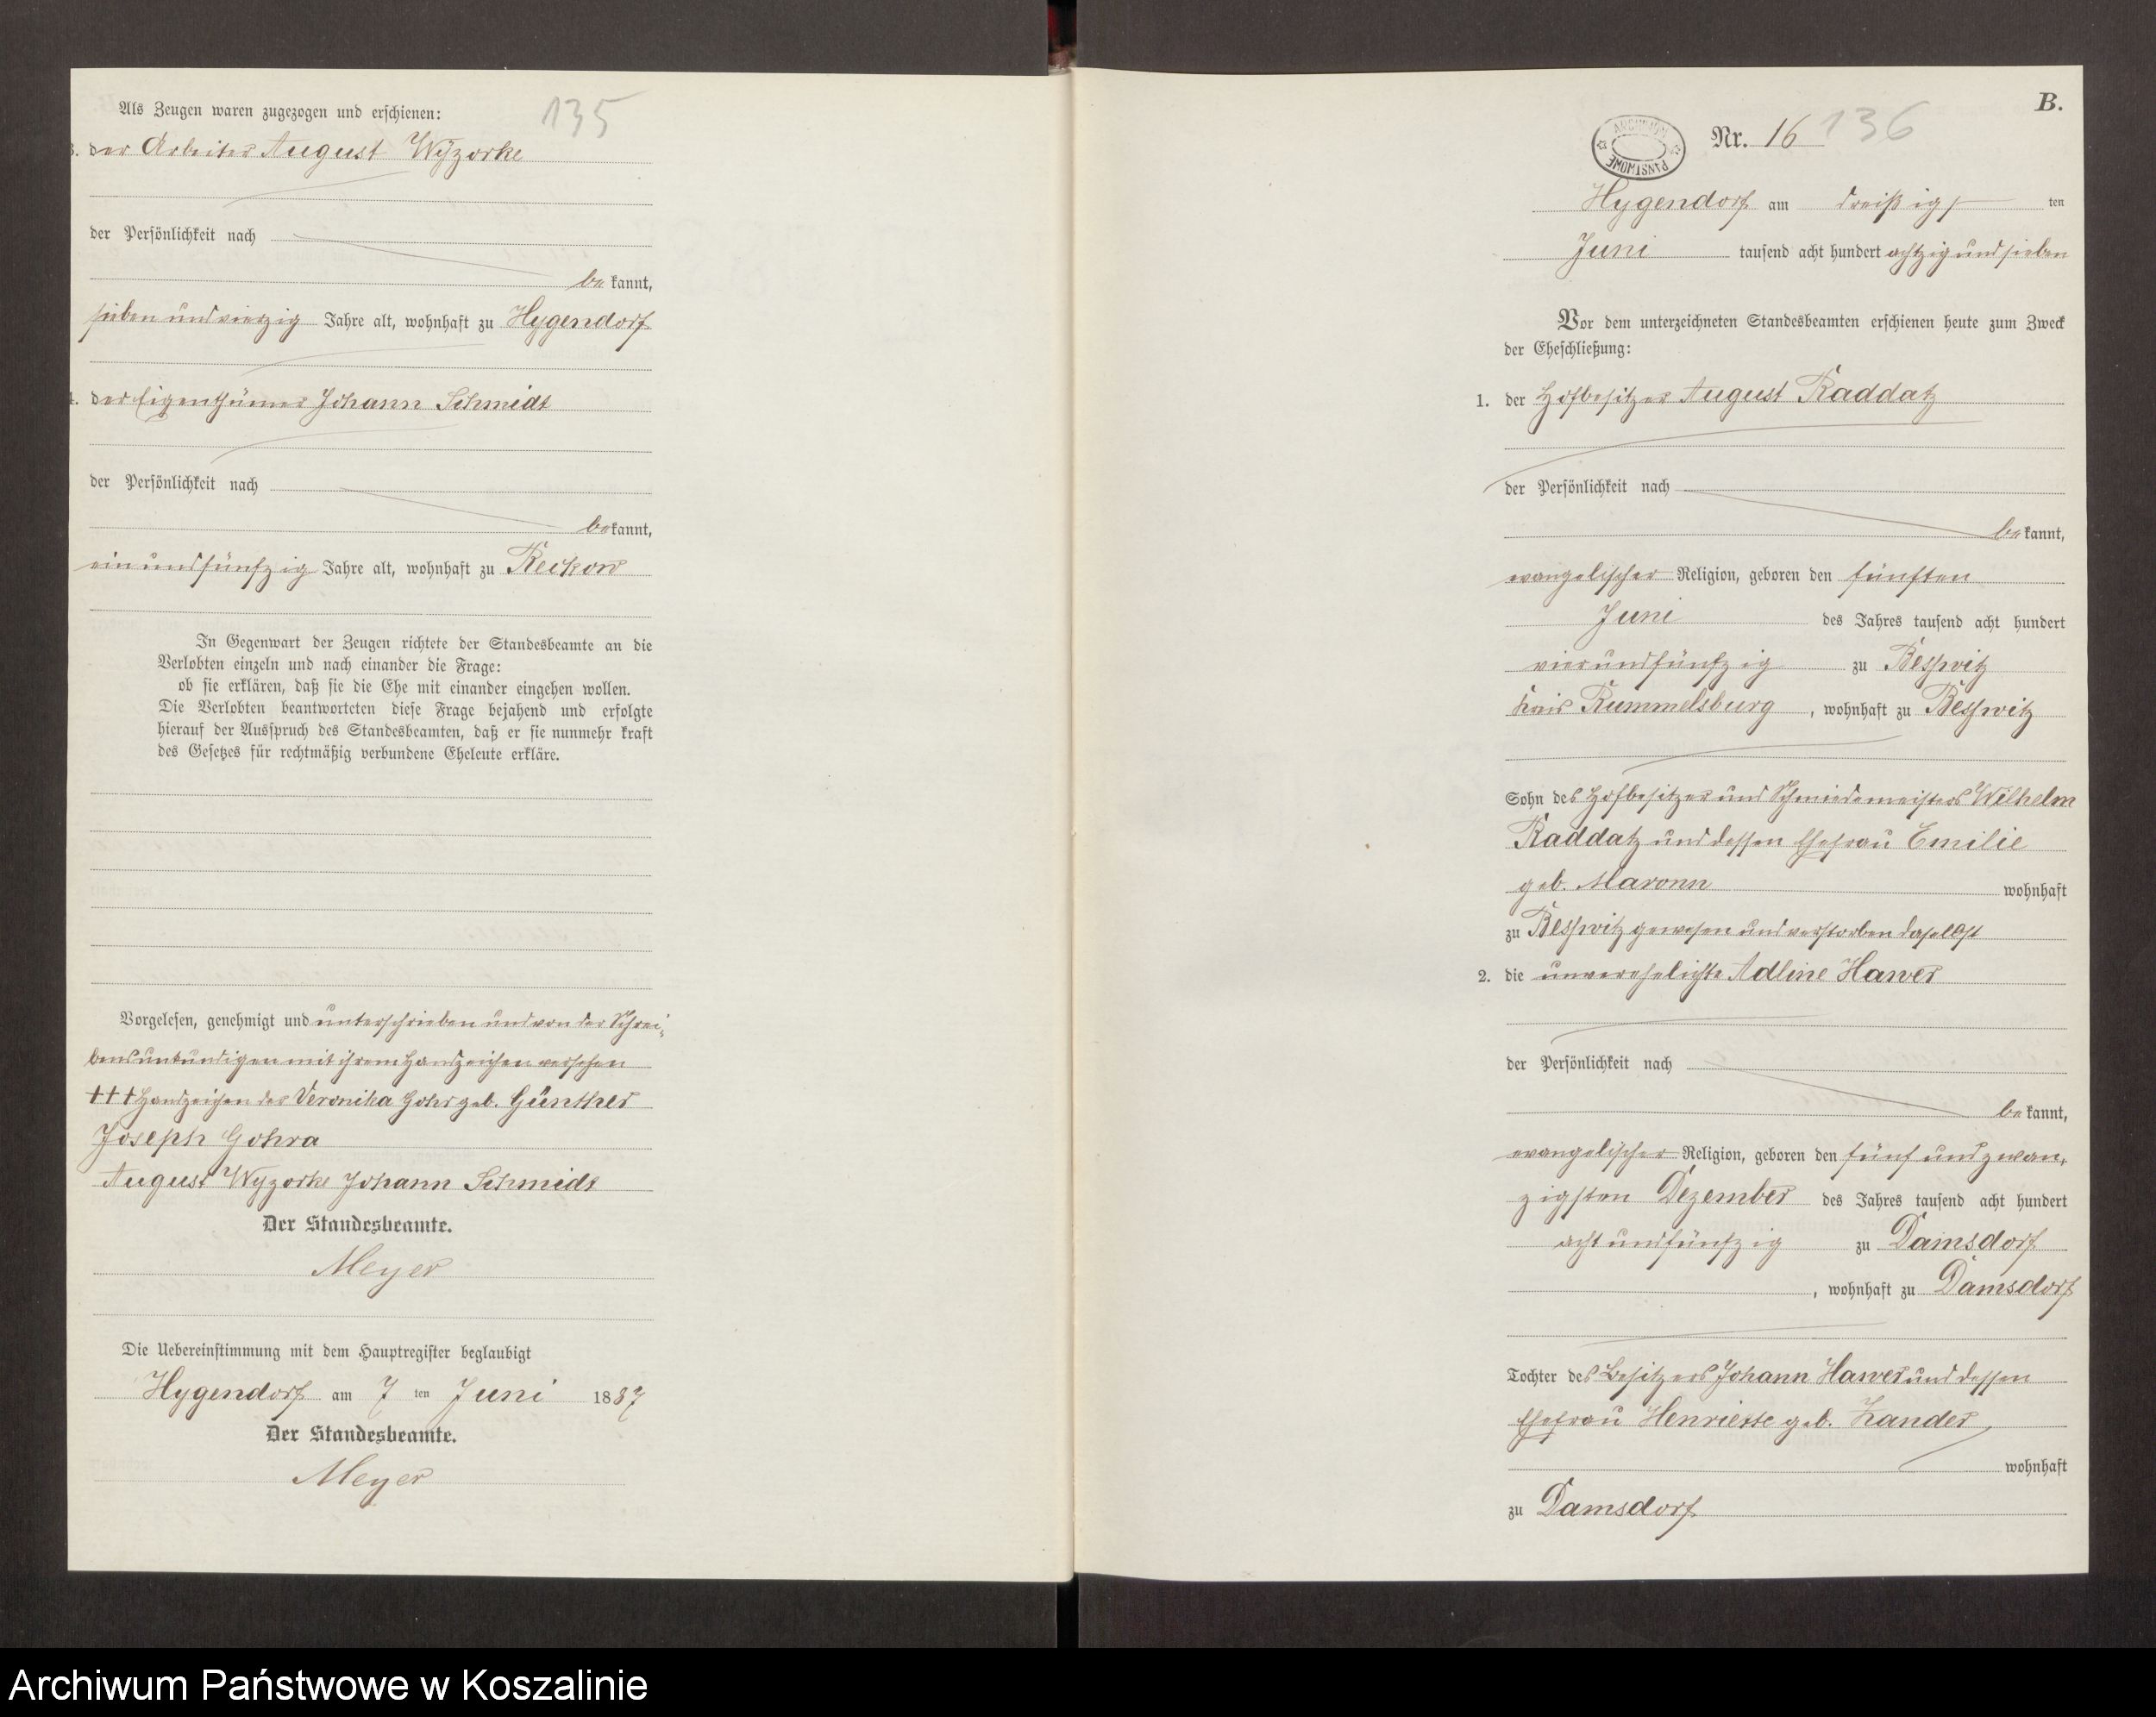 Als Zeugen waren zugezogen und erschienen:
135
3. der Arbeiter August Wyzorke
der Persönlichkeit nach
be kannt,
sieben und vierzig Jahre alt, wohnhaft zu Hygendorf
4. der Eigenthümer Johann Schmidt
der Persönlichkeit nach
bekannt,
ein und fünfzig Jahre alt, wohnhaft zu Reckow
In Gegenwart der Zeugen richtete der Standesbeamte an die
Verlobten einzeln und nach einander die Frage:
ob sie erklären, daß sie die Ehe mit einander eingehen wollen.
Die Verlobten beantworteten diese Frage bejahend und erfolgte
hierauf der Ausspruch des Standesbeamten, daß er sie nunmehr kraft
des Gesetzes für rechtmäßig verbundene Eheleute erkläre.
Vorgelesen, genehmigt und unterschrieben und von der Schrei-
bensunkundigen mit ihrem Handzeichen versehen
+++ Handzeichen der Veronika Gohr geb. Günther
Joseph Gohra
August Wyzorke Johann Schmidt
Der Standesbeamte.
Meyer
Die Uebereinstimmung mit dem Hauptregister beglaubigt
Hygendorf am 7 ten Juni 1887
Der Standesbeamte.
Meyer
B.
ARCHIWUM PAŃSTWOWE
Nr. 16 136
Hygendorf am dreißigsten
Juni tausend acht hundert achtzig und sieben
Vor dem unterzeichneten Standesbeamten erschienen heute zum Zweck
der Eheschließung:
1. der Hofbesitzer August Raddatz
der Persönlichkeit nach
be kannt,
evangelischer Religion, geboren den fünften
Juni des Jahres tausend acht hundert
vier und fünfzig zu Besswitz
Kreis Rummelsburg, wohnhaft zu Besswitz
Sohn des Hofbesitzer und Schmiedemeisters Wilhelm
Raddatz und dessen Ehefrau Emilie
geb. Maronn wohnhaft
zu Besswitz gewesen und verstorben daselbst
2. die unverehelichte Adline Hawer
der Persönlichkeit nach
be kannt,
evangelischer Religion, geboren den fünf und zwan-
zigsten Dezember des Jahres tausend acht hundert
acht und fünfzig zu Damsdorf
, wohnhaft zu Damsdorf
Tochter des Besitzers Johann Hawer und dessen
Ehefrau Henriette geb. Zander
wohnhaft
zu Damsdorf
Archiwum Państwowe w Koszalinie